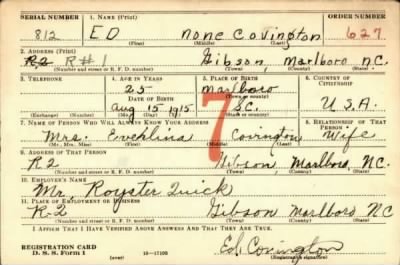 SERIAL NUMBER 1. NAME (Print) ORDER NUMBER
812 ED none Covington 627
(First) (Middle) (Last)
2. ADDRESS (Print)
R2 R#1 Gibson, Marlboro NC.
(Number and street or R. F. D. number) (Town) (County) (State)
3. TELEPHONE 4. AGE IN YEARS 5. PLACE OF BIRTH 6. COUNTRY OF CITIZENSHIP
25 Marlboro
DATE OF BIRTH (Town or county)
Aug 15 1915 SC. U.S.A.
(Exchange) (Number) (Mo.) (Day) (Yr.) (State or country)
7. NAME OF PERSON WHO WILL ALWAYS KNOW YOUR ADDRESS 8. RELATIONSHIP OF THAT PERSON
Mrs. Covington Wife
(Mr., Mrs., Miss) (First) (Middle) (Last)
9. ADDRESS OF THAT PERSON
R2 Gibson, Marlboro, NC.
(Number and street or R. F. D. number) (Town) (County) (State)
10. EMPLOYER'S NAME
Mr. Royster Quick
11. PLACE OF EMPLOYMENT OR BUSINESS
R-2 Gibson Marlboro NC
(Number and street or R. F. D. number) (Town) (County) (State)
I AFFIRM THAT I HAVE VERIFIED ABOVE ANSWERS AND THAT THEY ARE TRUE.
REGISTRATION CARD
D. S. S. Form 1 (over) 16—17105 Ed. Covington
(Registrant's signature)
7